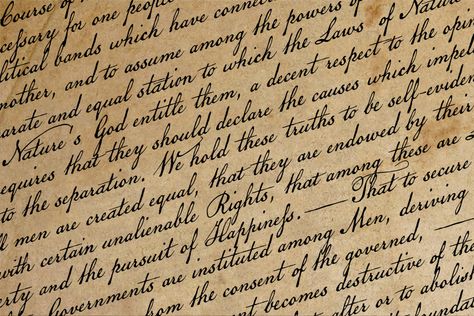 Course of
cefsary for one people
litical bands which have connec
nother, and to assume among the powers of
arate and equal station to which the Laws of Nature
Nature's God entitle them, a decent respect to the opi
equires that they should declare the causes which impel
to the separation. We hold these truths to be self-eviden
ll men are created equal, that they are endowed by their
with certain unalienable Rights, that among these are L
erty and the pursuit of Happinefs. — That to secure
Governments are instituted among Men, deriving
from the consent of the governed, —
nt becomes destructive of the
alter or to abolish
foundat